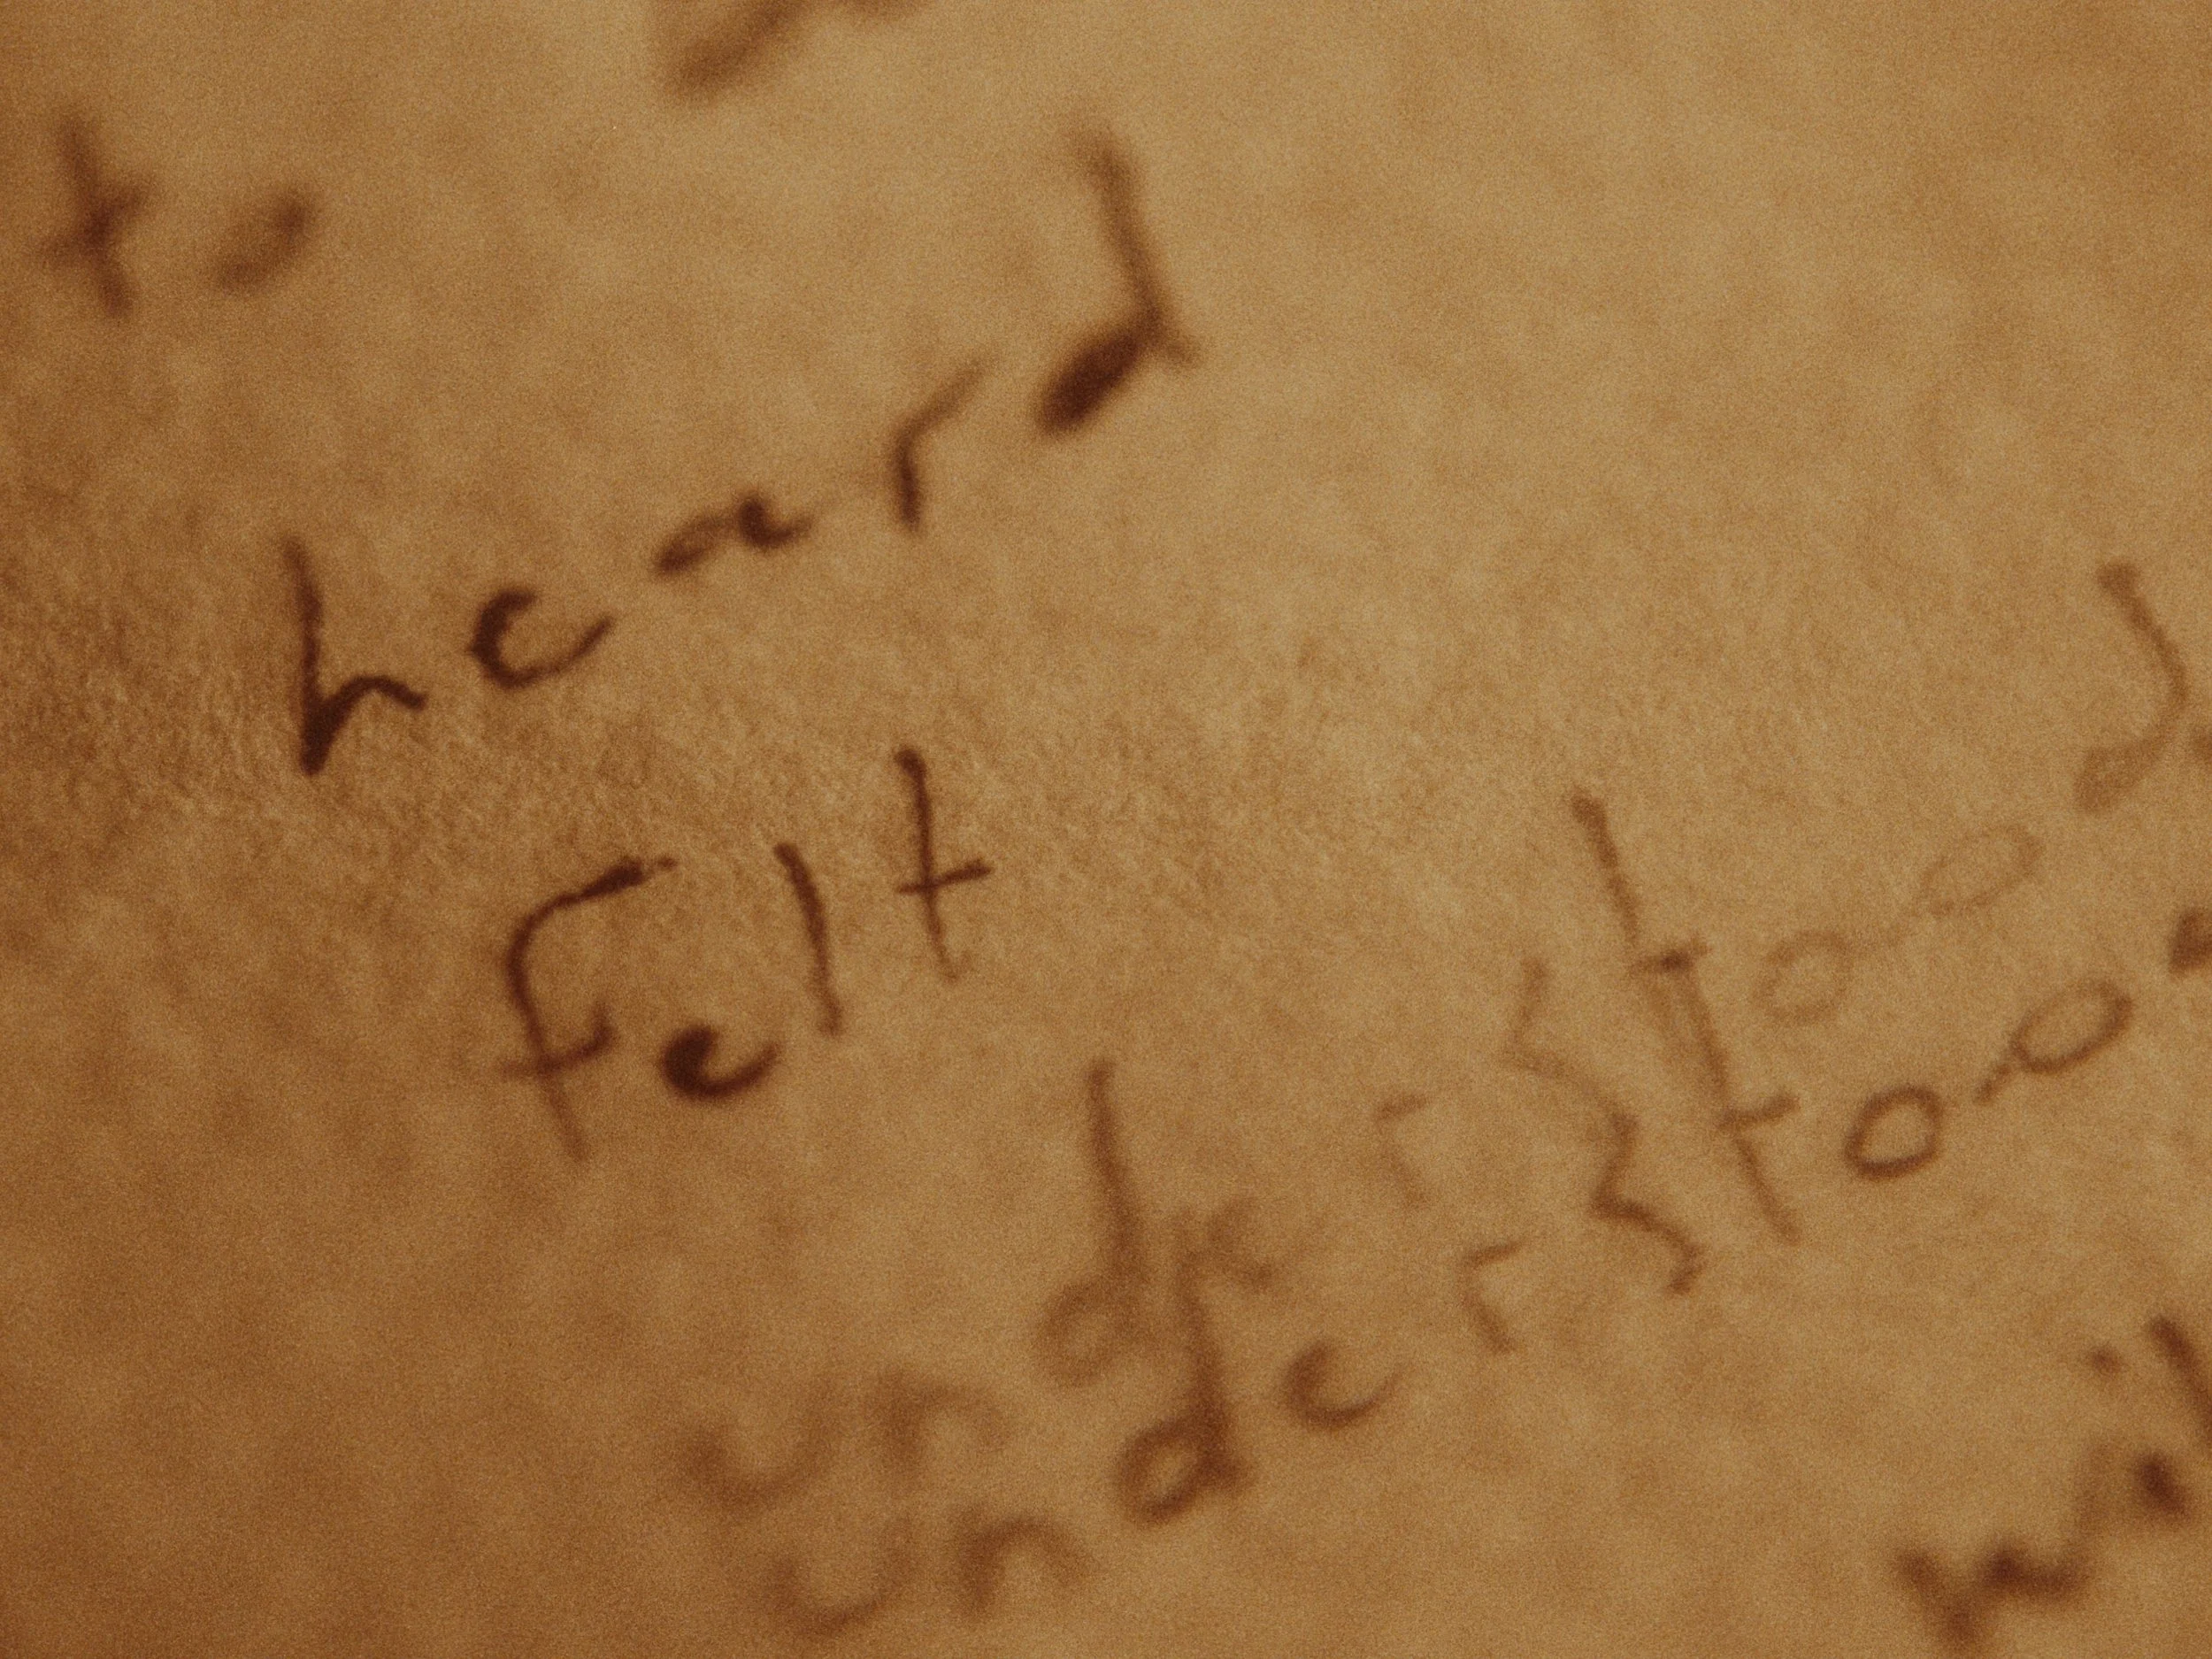 to
heard
felt
understood
understood